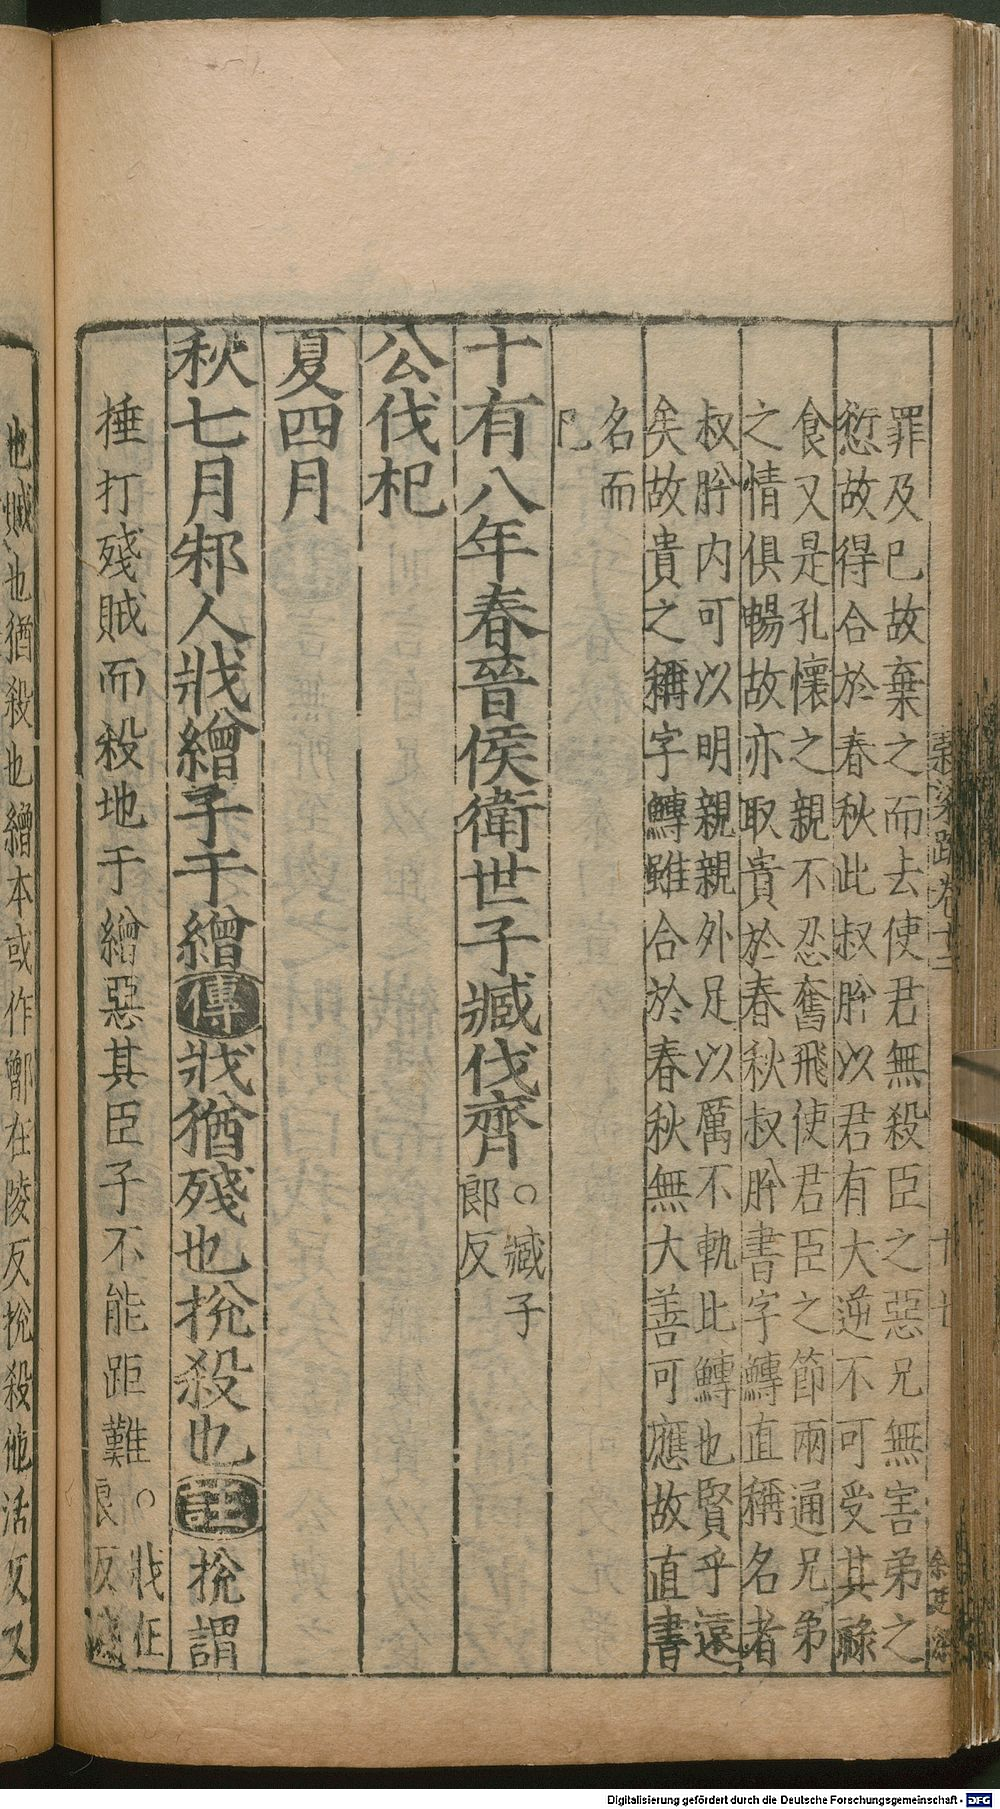 罪及巳故棄之而去使君無殺臣之惡兄無害弟之
愆故得合於春秋此叔肸以君有大逆不可受其祿
食又是孔懷之親不忍奮飛使君臣之節兩通兄弟
之情俱暢故亦取貴於春秋叔肸書字鱄直稱名者
叔肸内可以明親親外足以厲不軌此鱄也賢乎遠
矣故貴之稱字鱄雖合於春秋無大善可應故直書
名而
巳
十有八年春晉侯衛世子臧伐齊○臧子
郎反
公伐杞
夏四月
秋七月邾人戕繒子于繒傳戕猶殘也挩殺也註挩謂
捶打殘賊而殺地于繒惡其臣子不能距難○戕在
良反
也賊也猶殺也繒本或作鄫在陵反挩殺他活反又
穀梁疏卷十二
十七
Digitalisierung gefördert durch die Deutsche Forschungsgemeinschaft - DFG